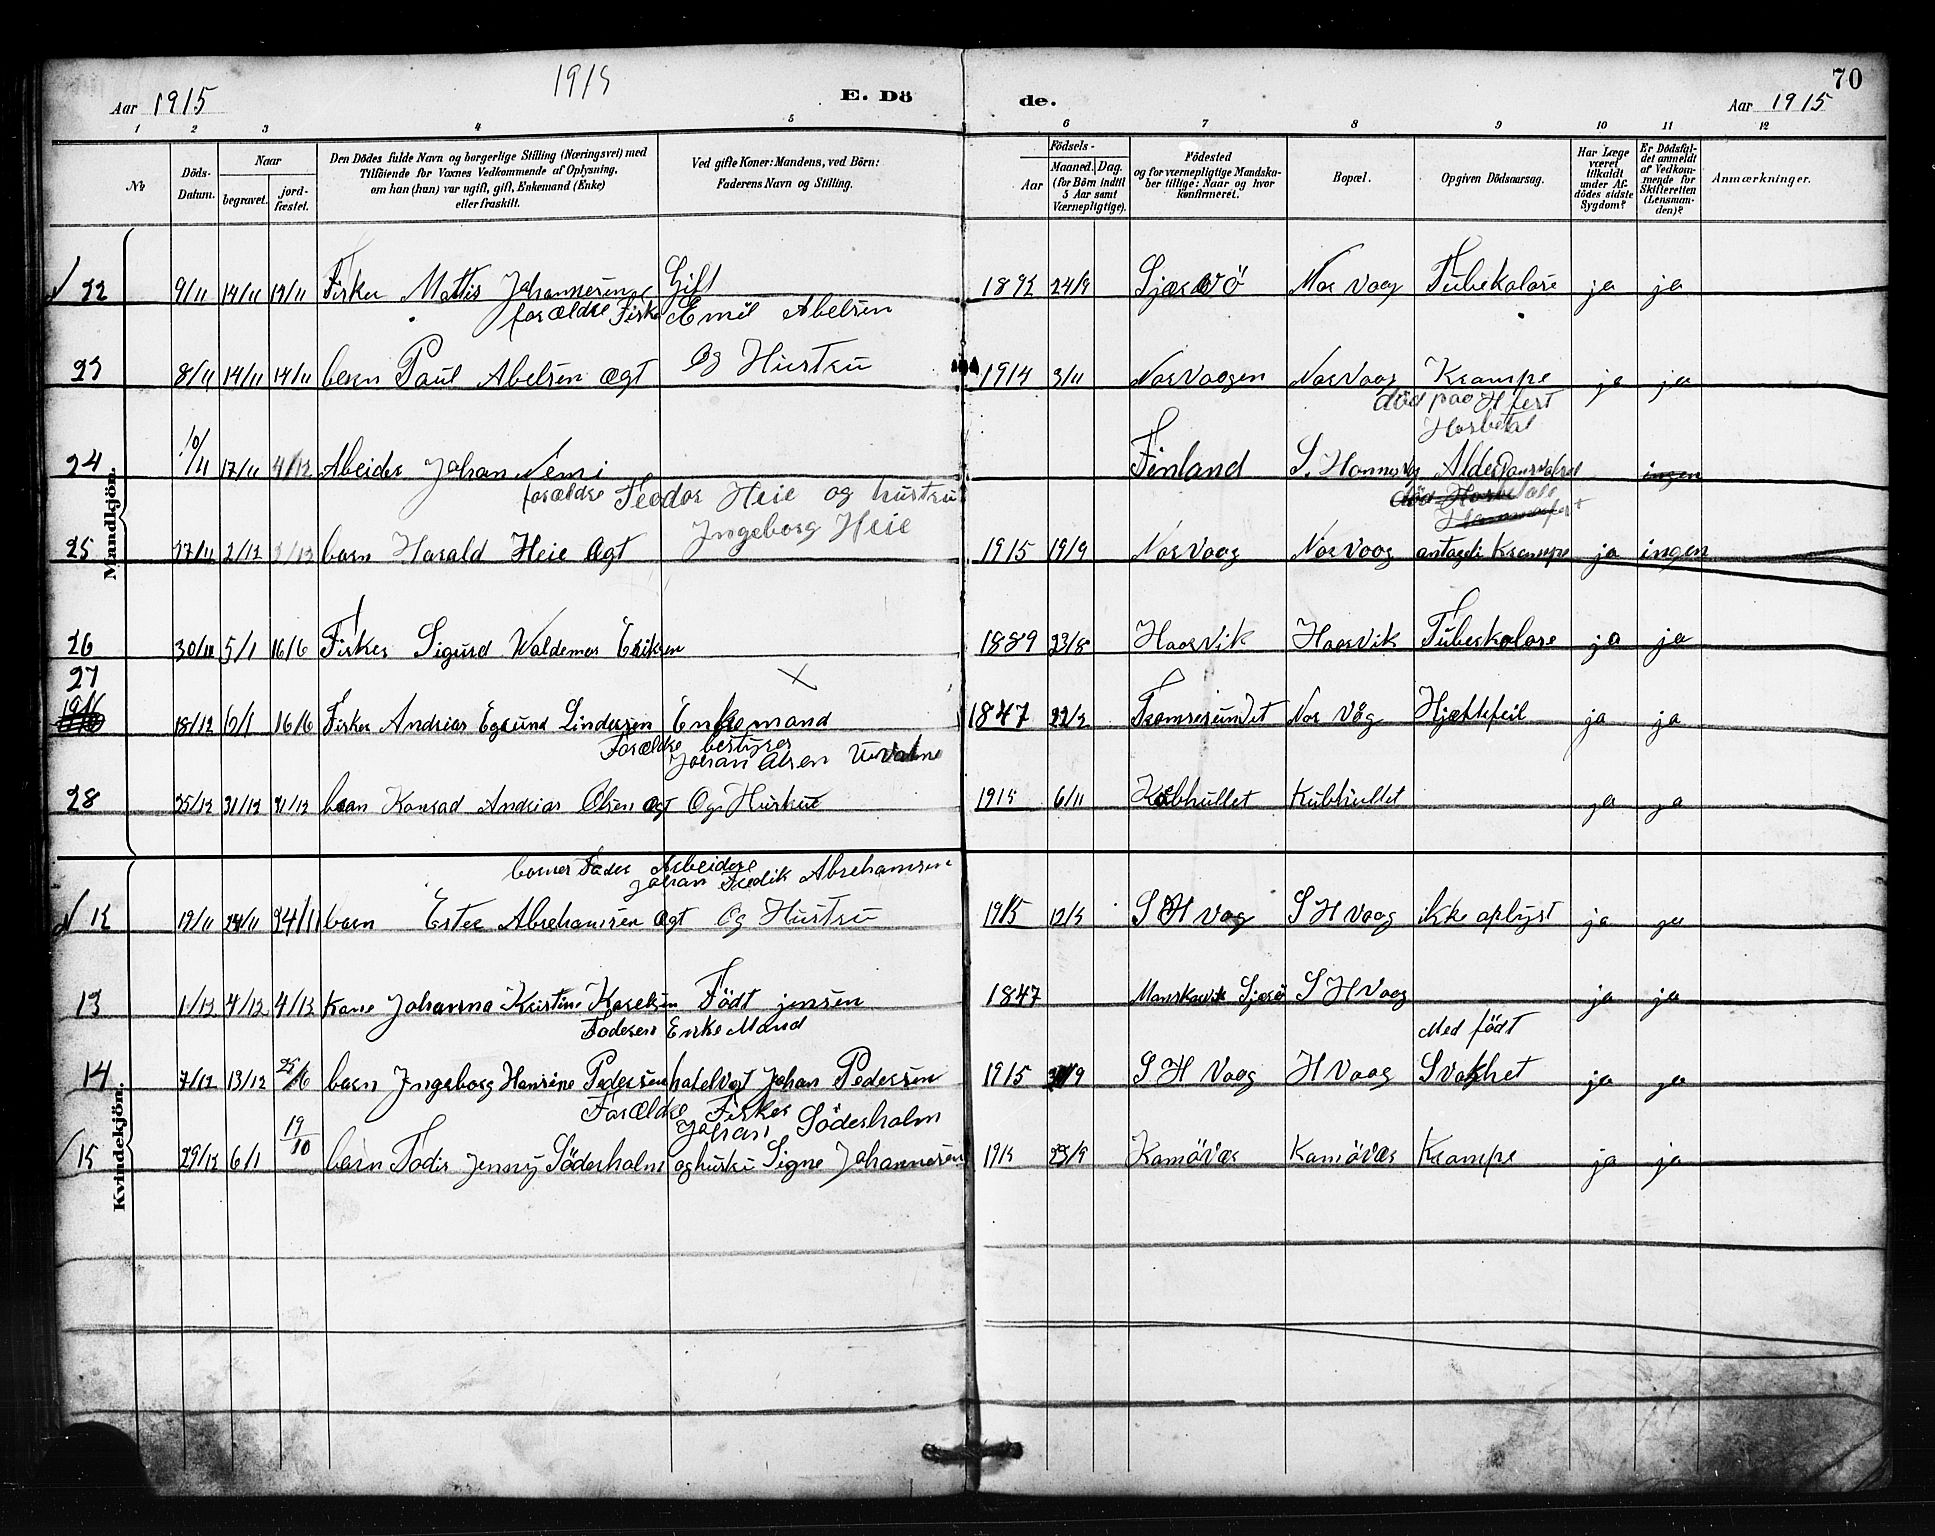 Aar 1915
1915
E. Dö
de.
70
Aar 1915
1 2 3 4 5 6 7 8 9 10 11 12
No
Döds-Datum.
Naar
begravet.
jord-fæstet.
Den Dödes fulde Navn og borgerlige Stilling (Næringsvei) med Tilföiende for Voxnes Vedkommende af Oplysning, om han (hun) var ugift, gift, Enkemand (Enke) eller fraskilt.
Ved gifte Koner: Mandens, ved Börn: Faderens Navn og Stilling.
Födsels-
Aar
Maaned. Dag.
(for Börn indtil 5 Aar samt Værnepligtige).
Födested
og for værnepligtige Mandska-ber tillige: Naar og hvor konfirmeret.
Bopæl.
Opgiven Dödsaarsag.
Har Læge været tilkaldt under Af-dödes sidste Sygdom?
Er Dödsfal-det anmeldt af Vedkom-mende for Skifteretten (Lensman-den)?
Anmærkninger.
Mandkjön.
22 9/11 14/11 14/11 Fisker Mattis Johannesen Gift 1892 24/9 Sjærvö Nor Vaag Tubekolose ja ja
forældre Fisker Emil Abelsen
23 8/11 14/11 14/11 barn Paul Abelsen ægt og Hustru 1914 3/11 NorVaagen NorVaag Krampe ja ja
död paa H fest
Hosbetal
24 10/11 17/11 4/12 Abeider Johan Nemi Finland S. Honnesvg Alderdomsvakhet ingen
forældre Teodor Heie og hustru
Ingeborg Heie
25 27/11 2/12 2/12 barn Harald Heie Ægt 1915 19/9 NorVaag NorVaag antagli Krampe ja ingen
26 30/11 5/1 16/6 Fisker Sigurd Waldemar Eriksen 1889 23/8 Haarvik Haarvik Tuberkolose ja ja
27
1916
18/12 6/1 16/6 Fisker Andreas Eglund Lindersen Enkemand 1847 22/2 Tromsesundet Nor Våg Hjættefeil ja ja
Forældre bestyrer
Johan Olsen
28 25/12 31/12 31/12 barn Konrad Andreas Olsen Ægt Og Hustru 1915 6/11 Kobhullet Kubhullet ja ja
Kvindekjön.
barnes Fader Arbeider
Johan Fredik Abrehamsen
12 19/11 24/11 24/11 barn Ester Abrehamsen Ægt Og Hustru 1915 12/5 S H Vag S H Vaag ikke oplyst ja ja
13 1/12 4/12 4/12 Kone Johanna Kristine Karelsen Födt jensen 1847 Manskarvik Sjærö S H Vaag ja ja
Faderen Enke Mand
Med födt
14 7/12 13/12 25/6 barn Ingeborg Hansine Pedersen hatelvert Johan Pedersen 1915 /9 S H Vaag H Vaag Svakhet ja ja
Forældre Fisker
Johan Söderholm
15 29/12 6/1 19/10 barn Fodis Jenny Söderholm og hustru Signe Johannesen 1915 23/9 Kamövær Kamövær Krampe ja ja